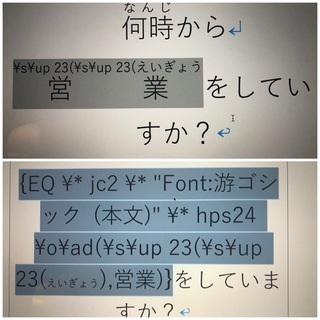 なんじ
何時から
¥s¥up 23(¥s¥up 23(えいぎょう
営業をしてい
すか？
{EQ ¥* jc2 ¥* "Font:游ゴシ
ック (本文)" ¥* hps24
¥o¥ad(¥s¥up 23(¥s¥up
23(えいぎょう),営業)}をしていま
すか？